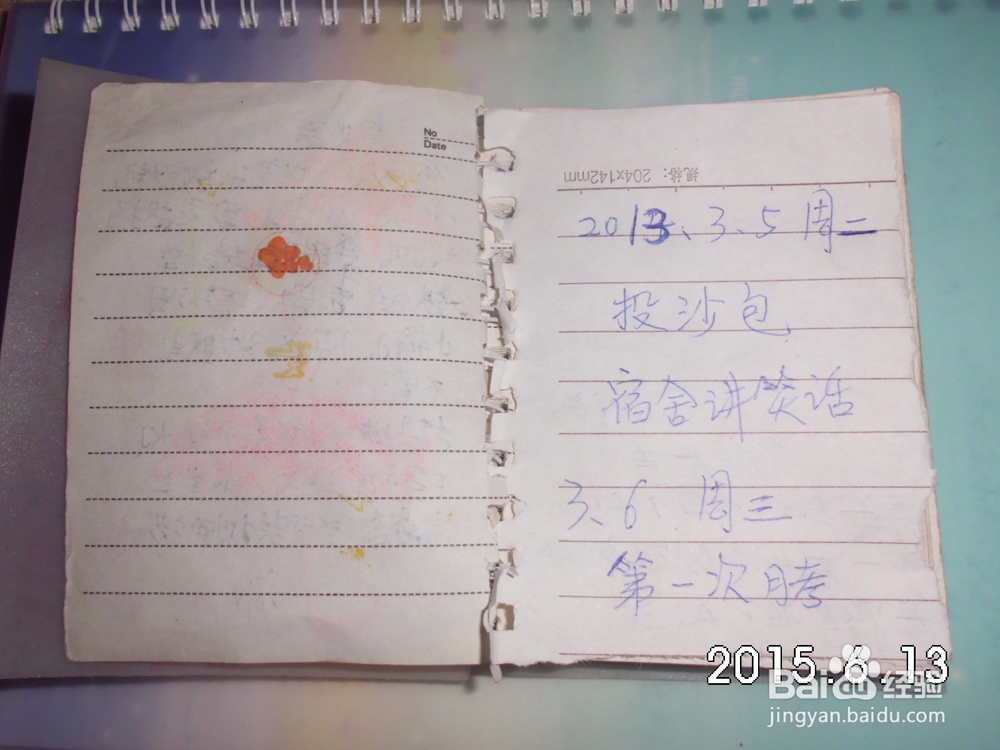 No
Date
规格：204x142mm
2013、3、5 周二
投沙包
宿舍讲笑话
3、6 周三
第一次月考
2015.6.13
Baidu 经验
jingyan.baidu.com